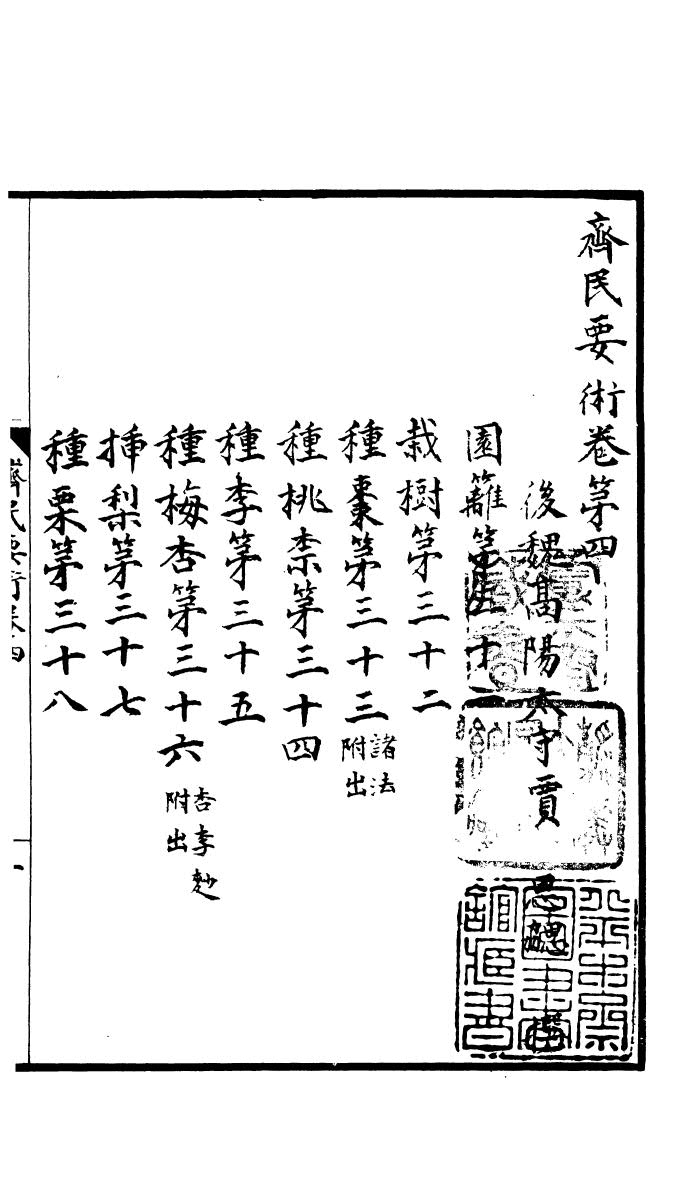 齊民要術卷第四
後魏高陽太守賈思勰撰
園籬第三十一
栽樹第三十二
種棗第三十三諸法附出
種桃柰第三十四
種李第三十五
種梅杏第三十六杏李麨附出
插梨第三十七
種栗第三十八
齊民要術卷四
一